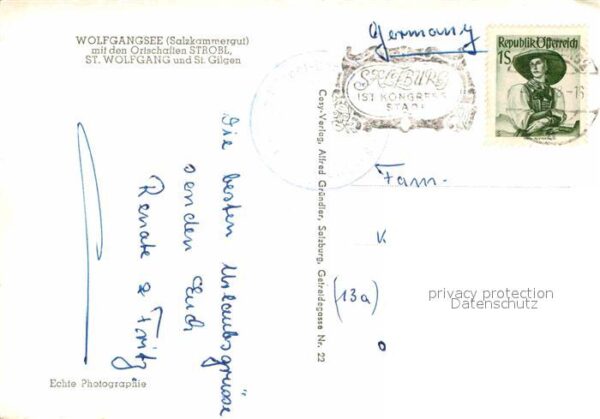 WOLFGANGSEE (Salzkammergut)
mit den Ortschaften STROBL,
ST. WOLFGANG und St. Gilgen
Die besten Urlaubsgrüsse
senden Euch
Renate & Fritz
Echte Photographie
Cosy-Verlag, Alfred Gründler, Salzburg, Getreidegasse Nr. 22
Germany
SALZBURG
IST KONGRESS
STADT
Republik Österreich
1S
Fam.
K
(13a)
privacy protection
Datenschutz